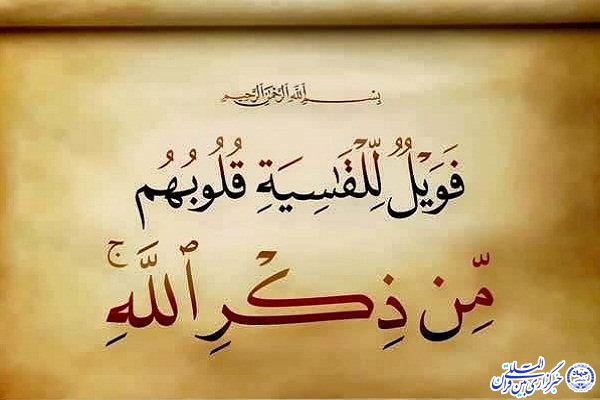 بِسْمِ ٱللَّهِ ٱلرَّحْمَٰنِ ٱلرَّحِيمِ
فَوَيْلٌ لِّلْقَٰسِيَةِ قُلُوبُهُم
مِّن ذِكْرِ ٱللَّهِ ۚ
خبرگزاری بین المللی قرآن